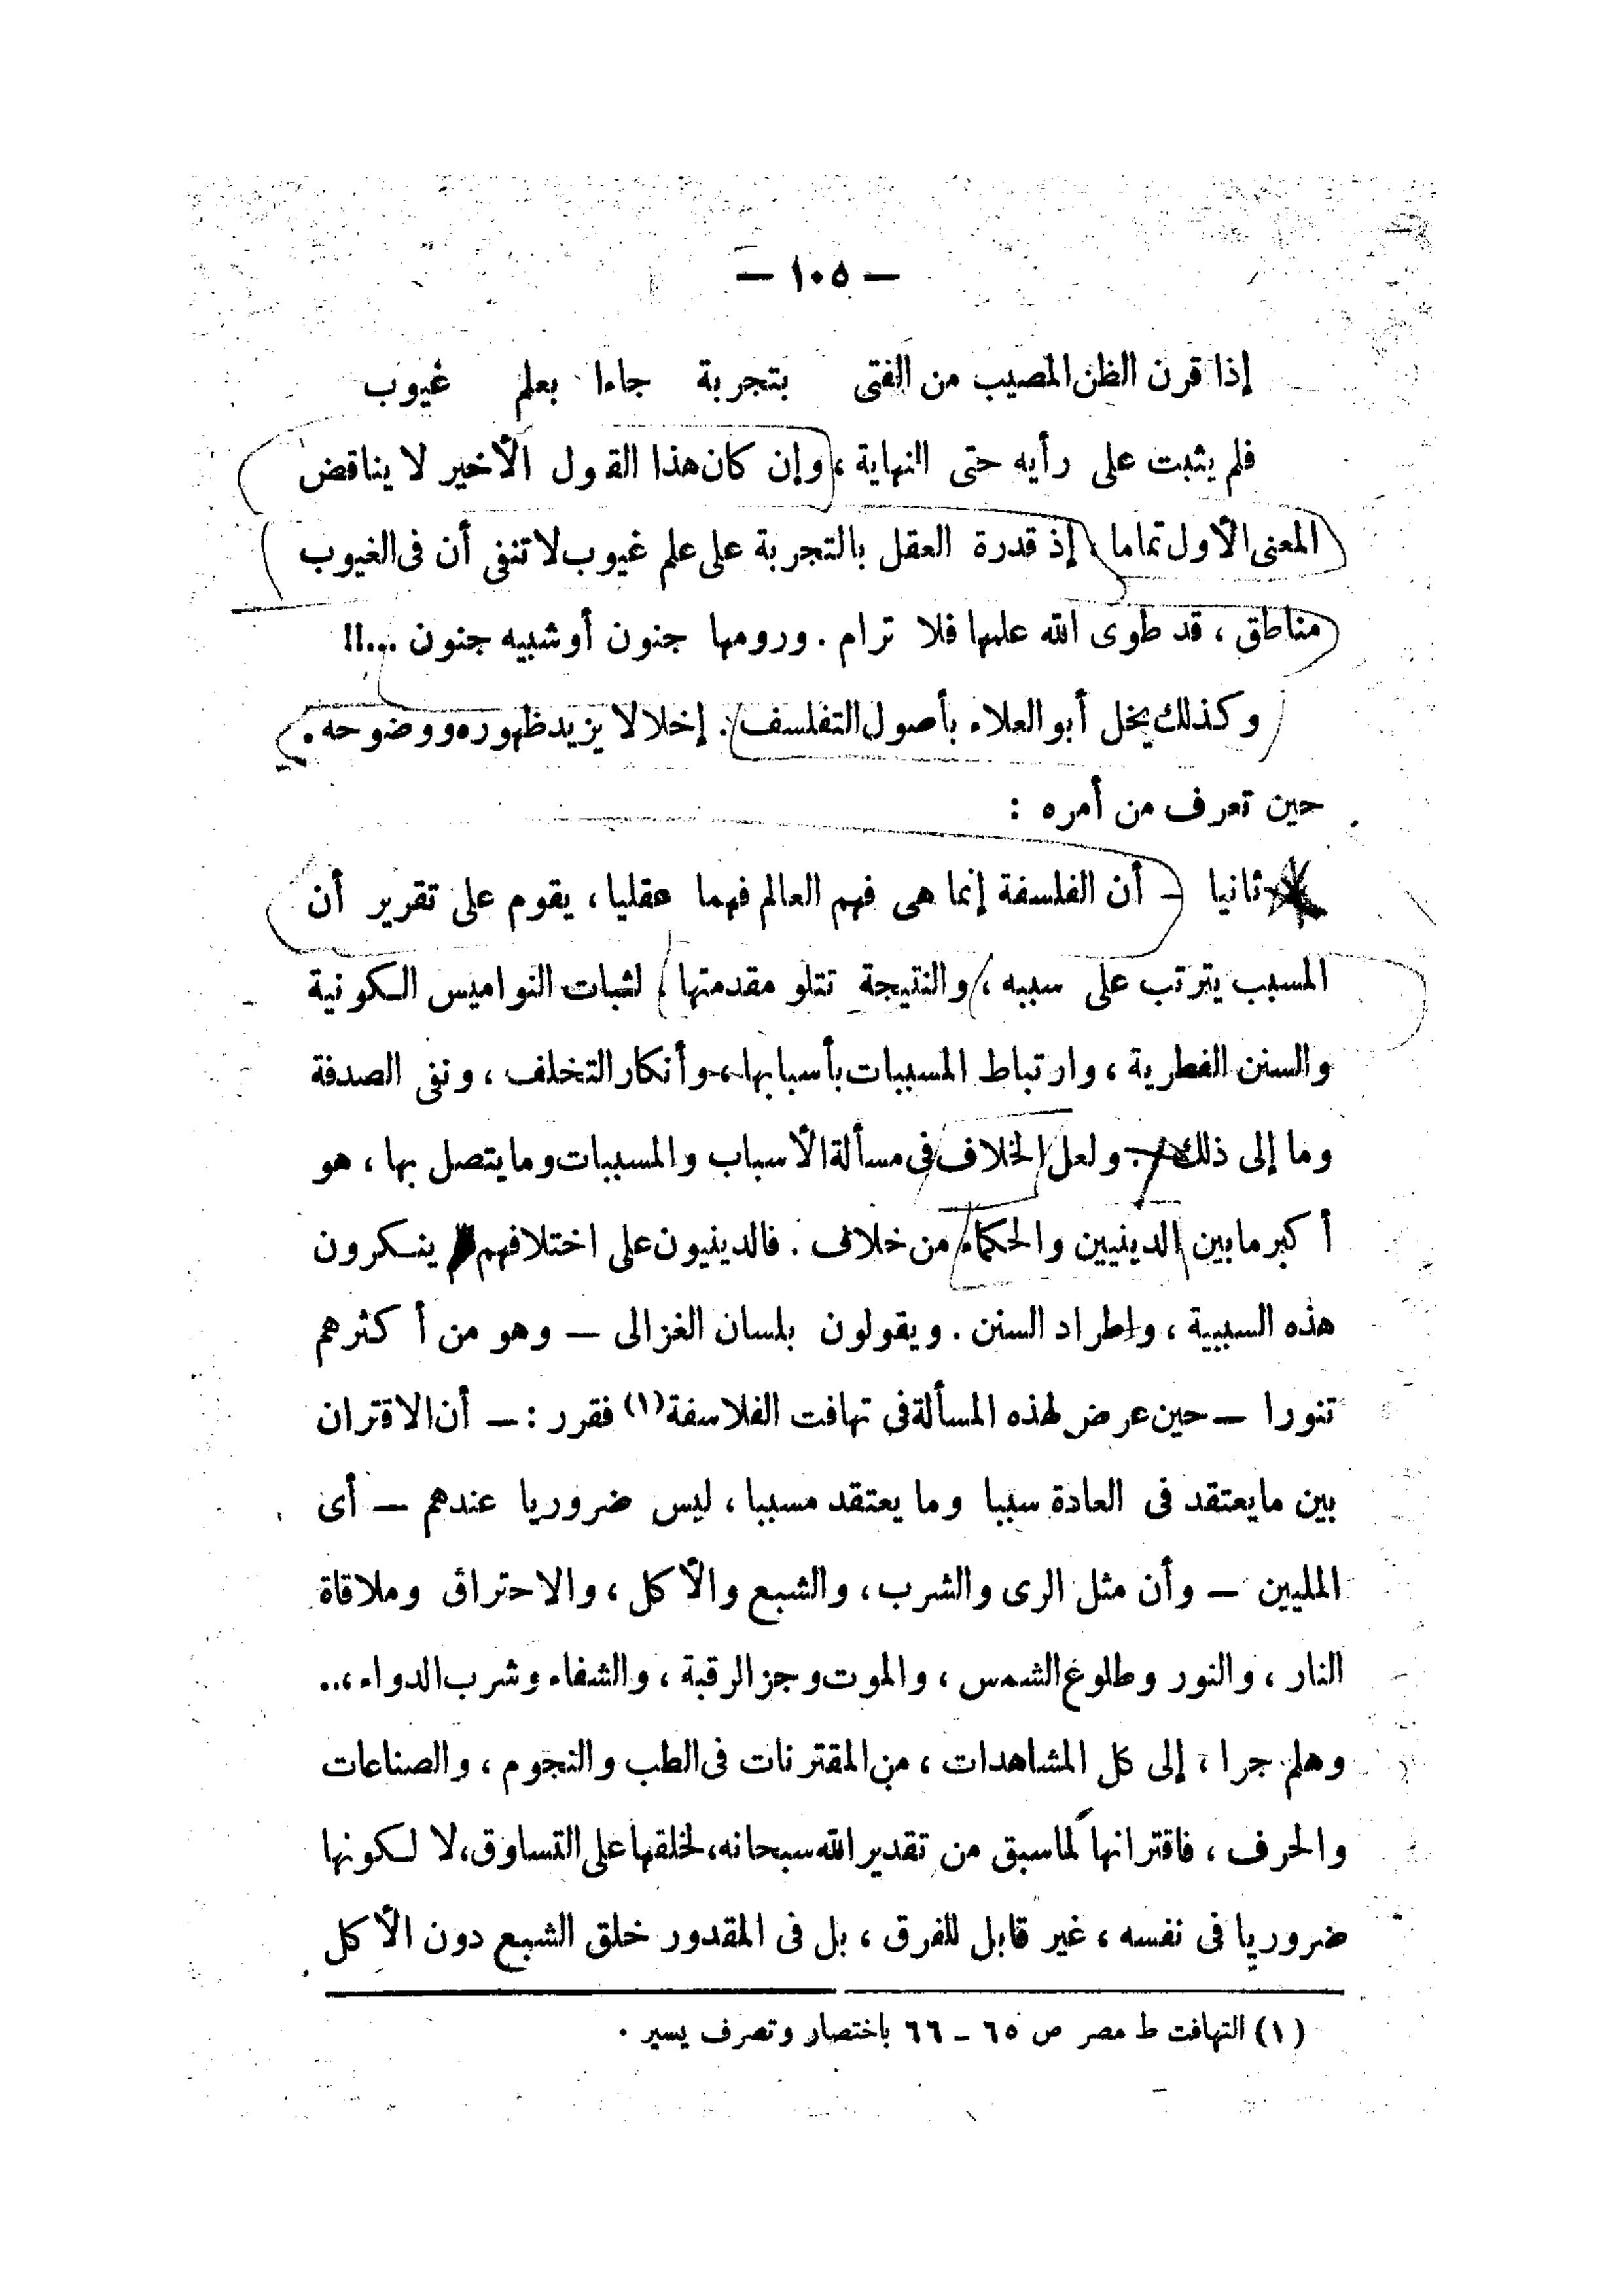 — ١٠٥ —
إذا قرن الظن المصيب من الفتى بتجربة جاءا بعلم غيوب
فلم يثبت على رأيه حتى النهاية ، وإن كان هذا القول الأخير لا يناقض
المعنى الأول تماما ، إذ قدرة العقل بالتجربة على علم غيوب لا تنفى أن فى الغيوب
مناطق ، قد طوى الله عليها فلا ترام . ورومها جنون أو شبيه جنون ...!!
وكذلك يخل أبو العلاء بأصول التفلسف . إخلالا يزيد ظهوره ووضوحه .
حين تعرف من أمره :
ثانيا — أن الفلسفة إنما هى فهم العالم فهما عقليا ، يقوم على تقرير أن
المسبب يترتب على سببه ، والنتيجة تتلو مقدمتها ، لثبات النواميس الكونية
والسنن الفطرية ، وارتباط المسببات بأسبابها ، وأنكار التخلف ، ونفى الصدفة
وما إلى ذلك . ولعل الخلاف فى مسألة الأسباب والمسببات وما يتصل بها ، هو
أكبر ما بين الدينيين والحكماء من خلاف . فالدينيون على اختلافهم ينكرون
هذه السببية ، واطراد السنن . ويقولون بلسان الغزالى — وهو من أكثرهم
تنورا — حين عرض لهذه المسألة فى تهافت الفلاسفة (١) فقرر : — أن الاقتران
بين ما يعتقد فى العادة سببا وما يعتقد مسببا ، ليس ضروريا عندهم — أى
المليين — وأن مثل الرى والشرب ، والشبع والأكل ، والاحتراق وملاقاة
النار ، والنور وطلوع الشمس ، والموت وجز الرقبة ، والشفاء وشرب الدواء ،..
وهلم جرا ، إلى كل المشاهدات ، من المقترنات فى الطب والنجوم ، والصناعات
والحرف ، فاقترانها لما سبق من تقدير الله سبحانه ، لخلقها على التساوق ، لا لكونها
ضروريا فى نفسه ، غير قابل للفرق ، بل فى المقدور خلق الشبع دون الأكل
(١) التهافت ط مصر ص ٦٥ – ٦٦ باختصار وتصرف يسير .